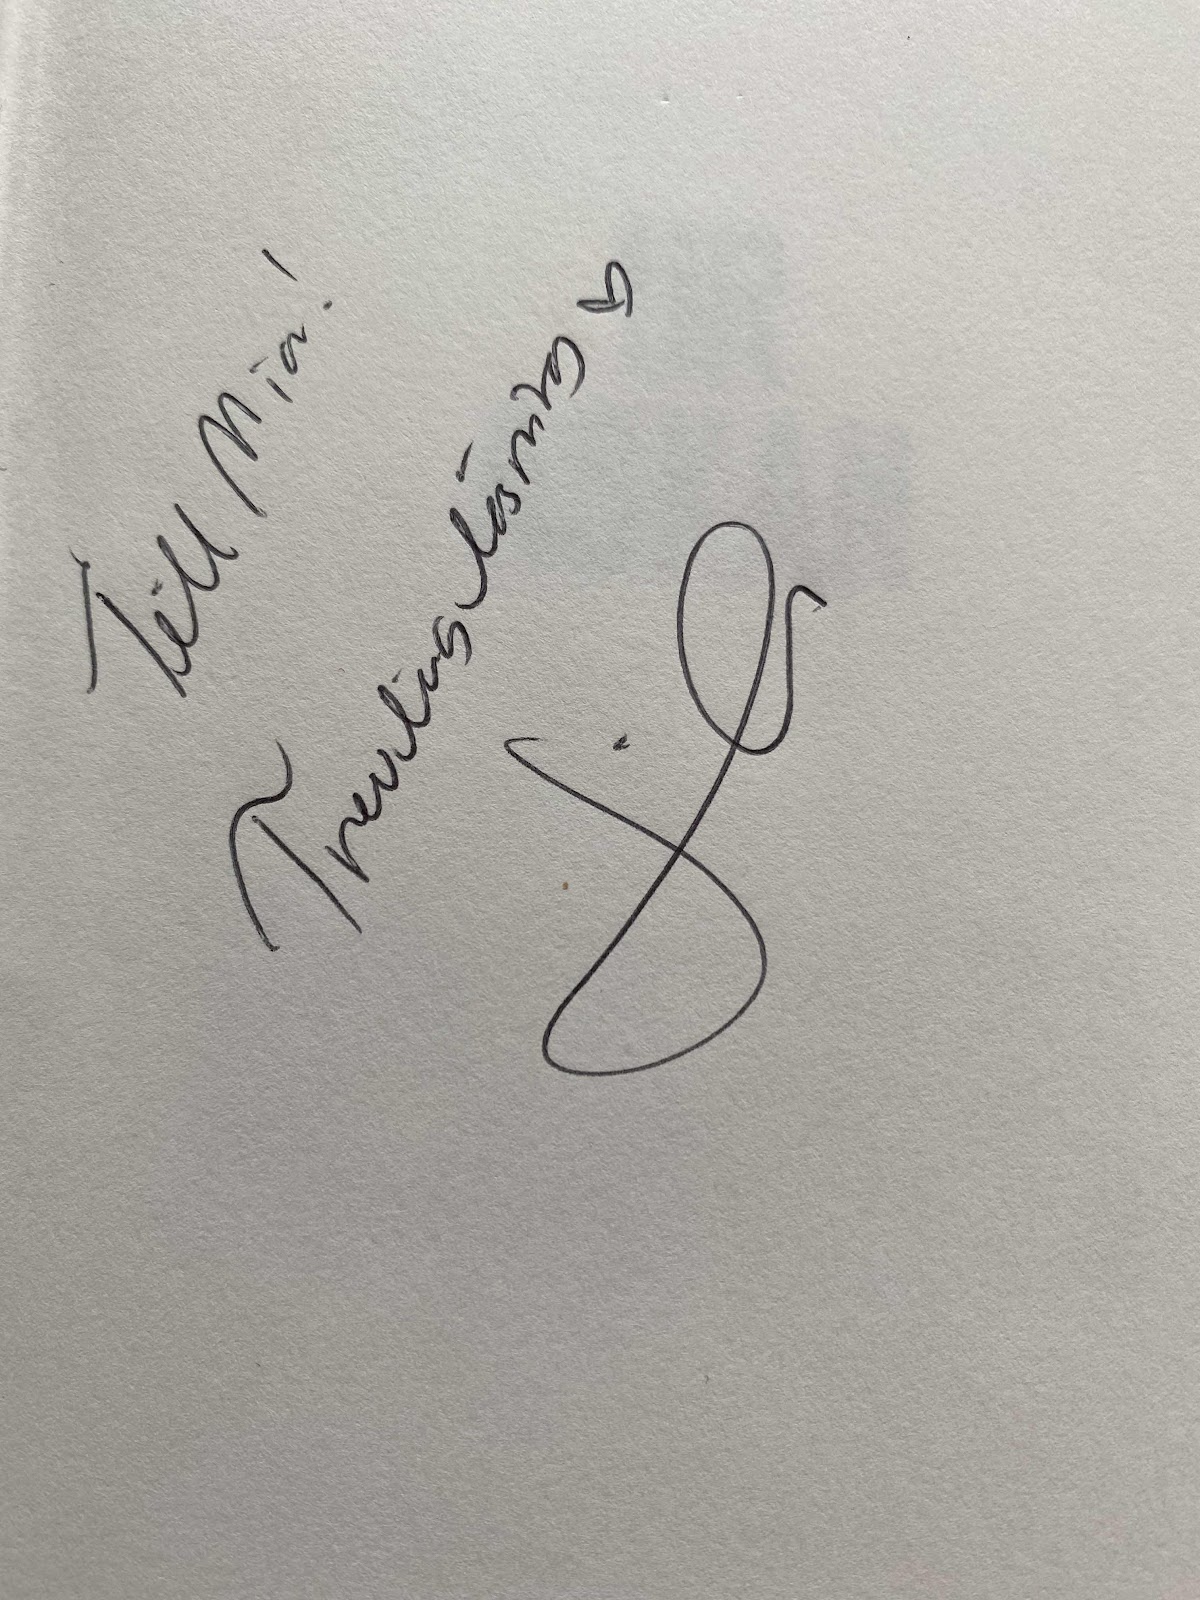 Till Mia!
Trevlig läsning